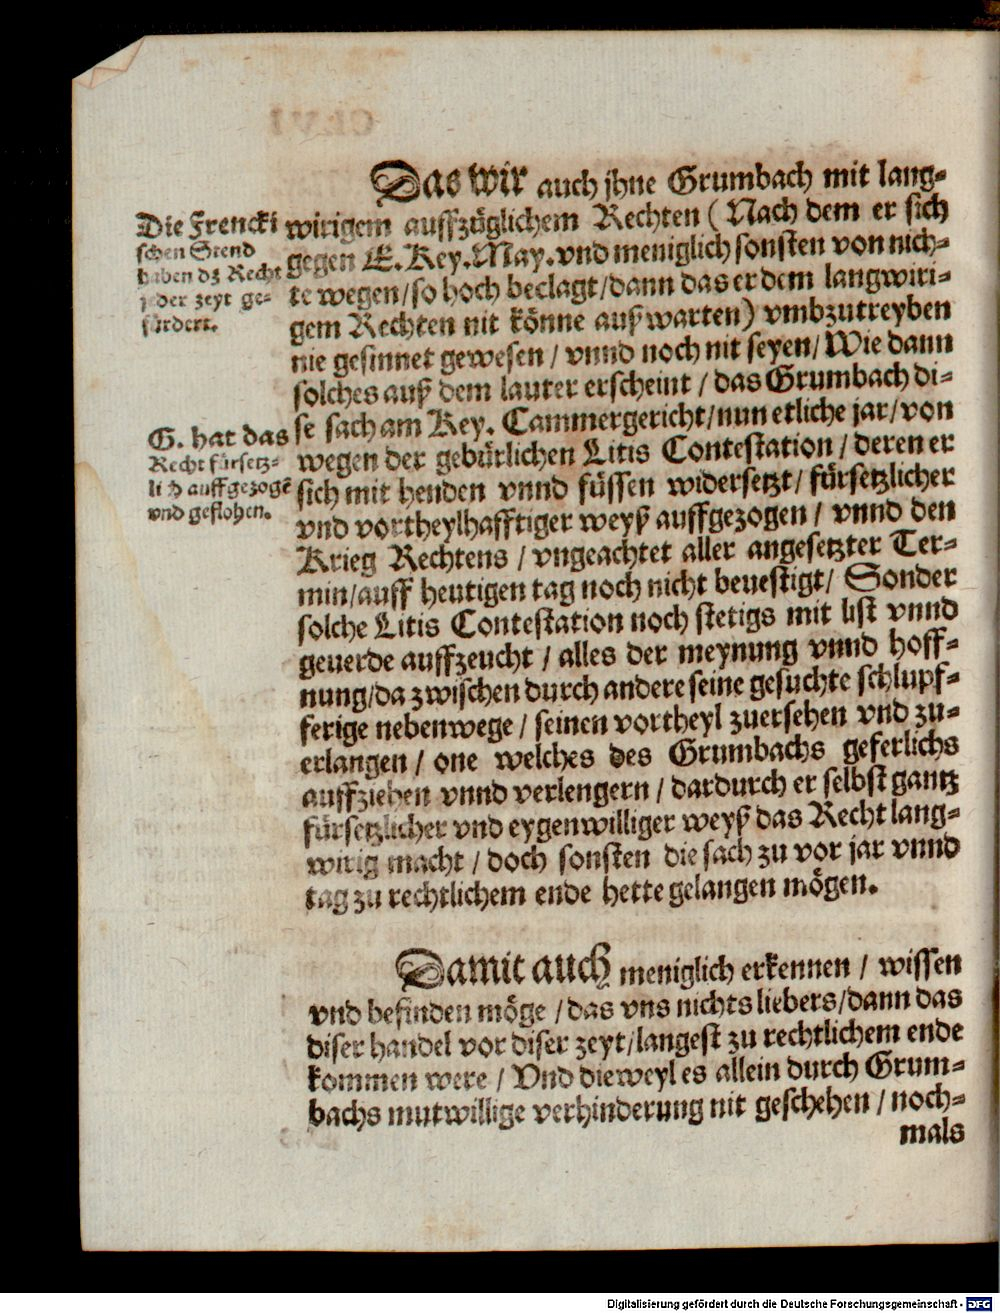 Das wir auch jhne Grumbach mit lang-
wirigem auffzüglichem Rechten (Nach dem er sich
gegen E. Key. May. vnd meniglich sonsten von nich-
te wegen/so hoch beclagt/dann das er dem langwiri-
gem Rechten nit könne außwarten) vmbzutreyben
nie gesinnet gewesen / vnnd noch nit seyen/ Wie dann
solches auß dem lauter erscheint / das Grumbach di-
se sach am Key. Cammergericht/nun etliche jar/von
wegen der gebürlichen Litis Contestation / deren er
sich mit henden vnnd füssen widersetzt/ fürsetzlicher
vnd vortheylhafftiger weyß auffgezogen / vnnd den
Krieg Rechtens / vngeachtet aller angesetzter Ter-
min/auff heutigen tag noch nicht beuestigt/ Sonder
solche Litis Contestation noch stetigs mit list vnnd
geuerde auffzeucht / alles der meynung vnnd hoff-
nung/da zwischen durch andere seine gesuchte schlupf-
ferige nebenwege / seinen vortheyl zuersehen vnd zu-
erlangen / one welches des Grumbachs geferlichs
auffziehen vnnd verlengern / dardurch er selbst gantz
fürsetzlicher vnd eygenwilliger weyß das Recht lang-
wirig macht / doch sonsten die sach zu vor jar vnnd
tag zu rechtlichem ende hette gelangen mögen.
Die Frencki
schen Stend
haben dz Recht
z der zeyt ge-
fürdert.
G. hat das
Recht fürsetz-
lich auffgezogē
vnd geflohen.
Damit auch meniglich erkennen / wissen
vnd befinden möge / das vns nichts liebers/dann das
diser handel vor diser zeyt/langest zu rechtlichem ende
kommen were / Vnd dieweyl es allein durch Grum-
bachs mutwillige verhinderung nit geschehen / noch-
mals
Digitalisierung gefördert durch die Deutsche Forschungsgemeinschaft - DFG